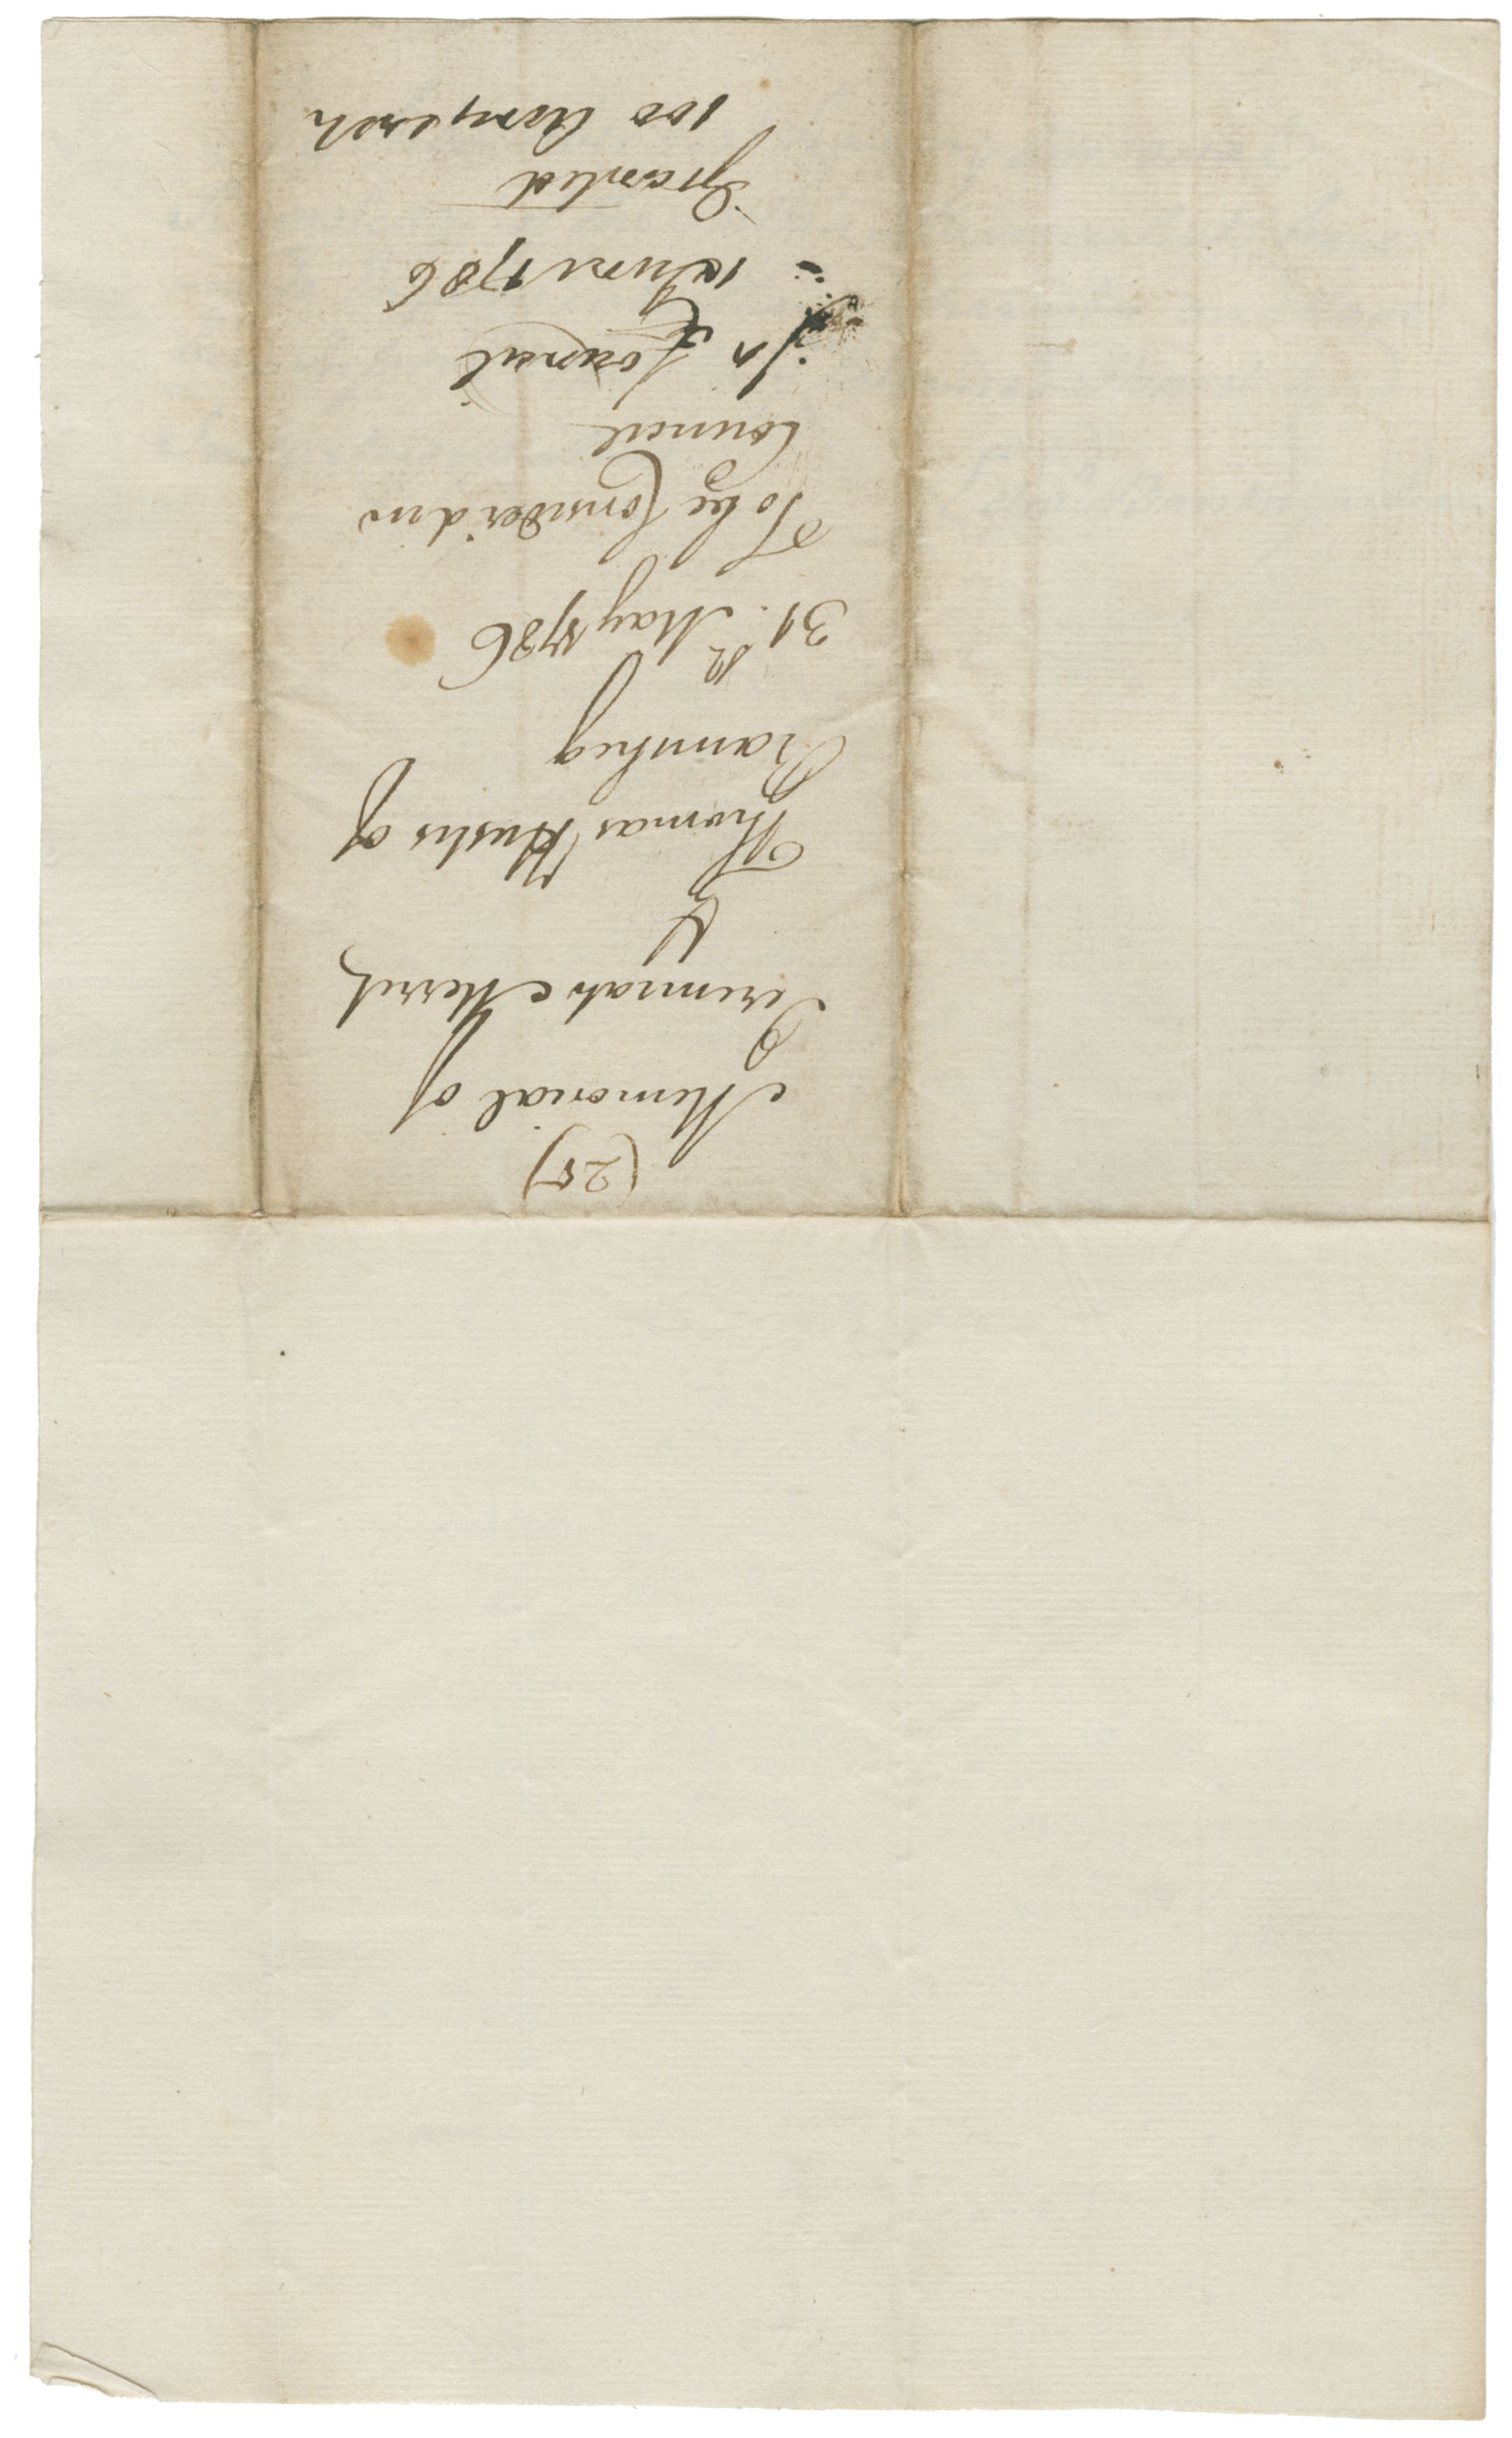 (25)
Memorial of
Jeremiah Merrit
&
Thomas Hustis of
Ramsheg
31st. May 1786
To be Considered in
Council
In Council
1st June 1786
Granted
100 Acres each